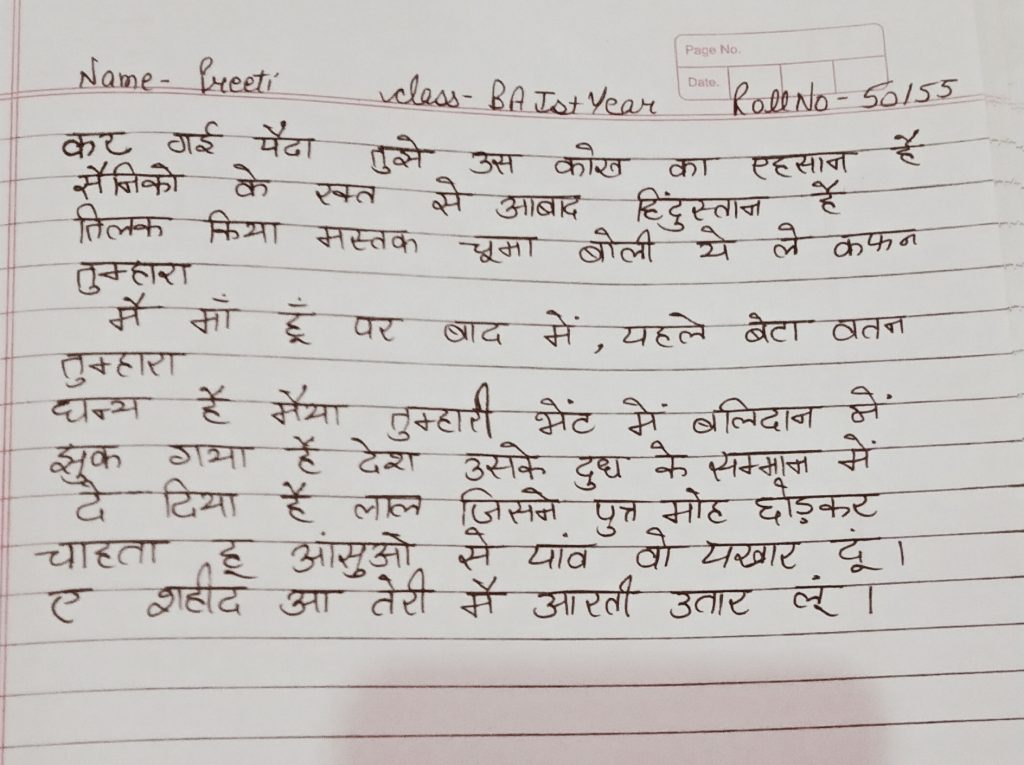 Page No.
Date.
Name- Preeti class- BA Ist Year Roll No - 50155
कट गई पैदा तुझे उस कोख का एहसान है
सैनिको के रक्त से आबाद हिंदुस्तान है
तिलक किया मस्तक चूमा बोली ये ले कफन
तुम्हारा
मै माँ हूँ पर बाद में, पहले बेटा वतन
तुम्हारा
धन्य है मैया तुम्हारी भेंट में बलिदान में
झुक गया है देश उसके दुध के सम्मान में
दे दिया है लाल जिसने पुत्र मोह छोड़कर
चाहता हू आंसुओ से पांव वो पखार दूं।
ए शहीद आ तेरी मै आरती उतार लूं।